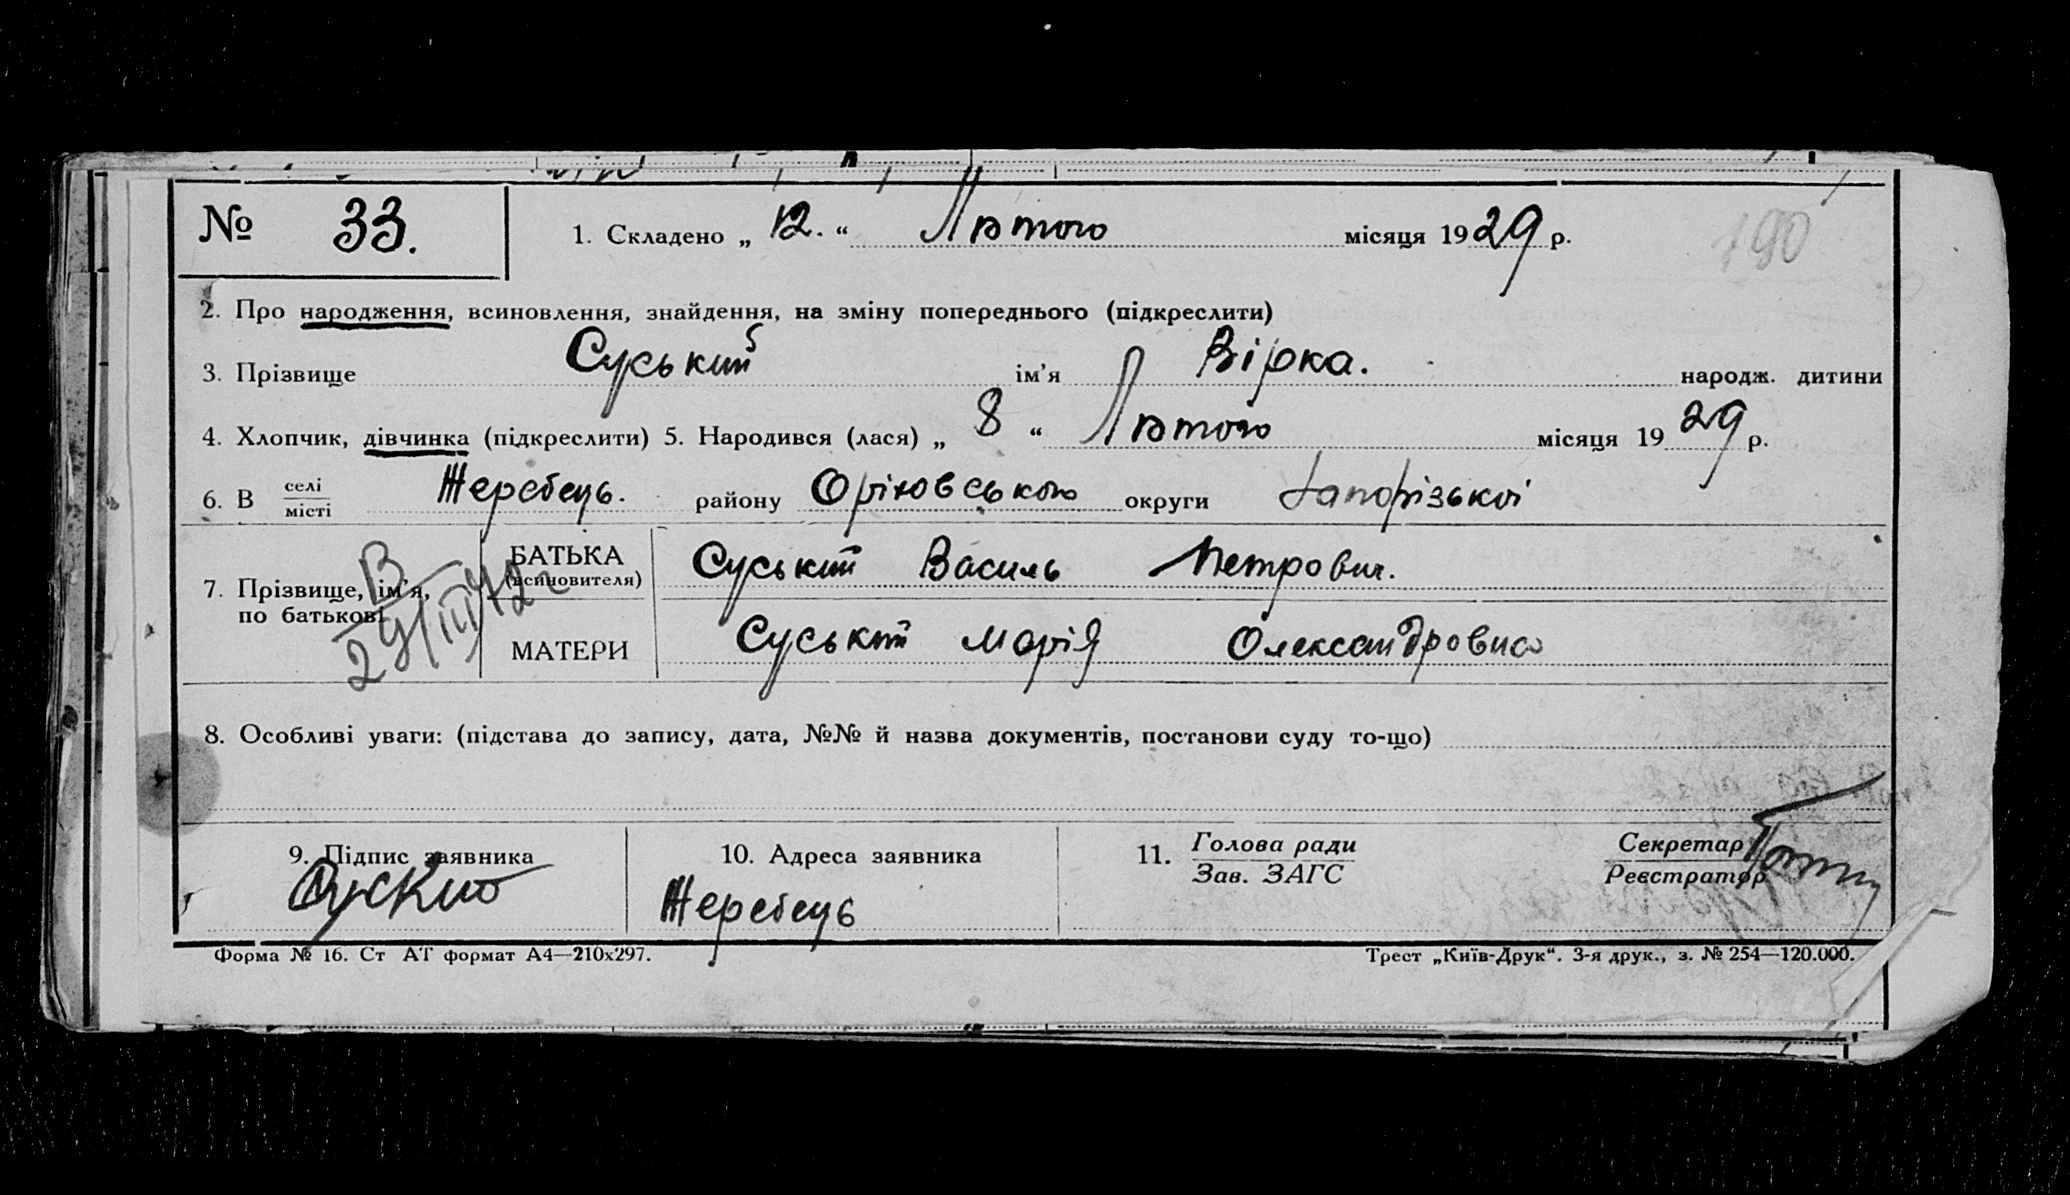 № 33. 1. Складено „ 12. “ Лютого місяця 1929 р. 190
2. Про народження, всиновлення, знайдення, на зміну попереднього (підкреслити)
3. Прізвище Суський ім’я Вірка. народж. дитини
4. Хлопчик, дівчинка (підкреслити) 5. Народився (лася) „ 8 “ Лютого місяця 1929 р.
6. В селі / місті Жеребець. району Оріховського округи Запорізької
7. Прізвище, ім’я, по батькові
В 29/III 42
БАТЬКА (всиновителя) Суський Василь Петрович.
МАТЕРИ Суський Марія Олександровна
8. Особливі уваги: (підстава до запису, дата, №№ й назва документів, постанови суду то-що)
9. Підпис заявника 10. Адреса заявника 11. Голова ради Секретар
Зав. ЗАГС Реєстратор
Жеребець
Форма № 16. Ст АТ формат А4—210х297. Трест „Київ-Друк“. 3-я друк., з. № 254—120.000.